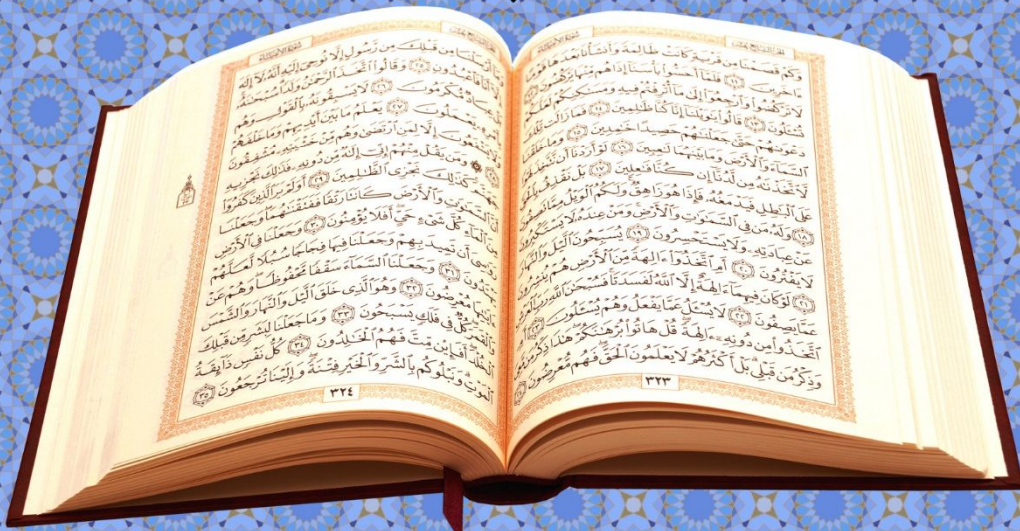 وَكَمْ قَصَمْنَا مِن قَرْيَةٍ كَانَتْ ظَالِمَةً وَأَنشَأْنَا بَعْدَهَا قَوْمًا
ءَاخَرِينَ ١١ فَلَمَّآ أَحَسُّوا۟ بَأْسَنَآ إِذَا هُم مِّنْهَا يَرْكُضُونَ ١٢
لَا تَرْكُضُوا۟ وَٱرْجِعُوٓا۟ إِلَىٰ مَآ أُتْرِفْتُمْ فِيهِ وَمَسَٰكِنِكُمْ لَعَلَّكُمْ
تُسْـَٔلُونَ ١٣ قَالُوا۟ يَٰوَيْلَنَآ إِنَّا كُنَّا ظَٰلِمِينَ ١٤ فَمَا زَالَت تِّلْكَ
دَعْوَىٰهُمْ حَتَّىٰ جَعَلْنَٰهُمْ حَصِيدًا خَٰمِدِينَ ١٥ وَمَا خَلَقْنَا
ٱلسَّمَآءَ وَٱلْأَرْضَ وَمَا بَيْنَهُمَا لَٰعِبِينَ ١٦ لَوْ أَرَدْنَآ أَن نَّتَّخِذَ لَهْوًا
لَّٱتَّخَذْنَٰهُ مِن لَّدُنَّآ إِن كُنَّا فَٰعِلِينَ ١٧ بَلْ نَقْذِفُ بِٱلْحَقِّ
عَلَى ٱلْبَٰطِلِ فَيَدْمَغُهُۥ فَإِذَا هُوَ زَاهِقٌ وَلَكُمُ ٱلْوَيْلُ مِمَّا تَصِفُونَ
١٨ وَلَهُۥ مَن فِى ٱلسَّمَٰوَٰتِ وَٱلْأَرْضِ وَمَنْ عِندَهُۥ لَا يَسْتَكْبِرُونَ
عَنْ عِبَادَتِهِۦ وَلَا يَسْتَحْسِرُونَ ١٩ يُسَبِّحُونَ ٱلَّيْلَ وَٱلنَّهَارَ
لَا يَفْتُرُونَ ٢٠ أَمِ ٱتَّخَذُوٓا۟ ءَالِهَةً مِّنَ ٱلْأَرْضِ هُمْ يُنشِرُونَ
٢١ لَوْ كَانَ فِيهِمَآ ءَالِهَةٌ إِلَّا ٱللَّهُ لَفَسَدَتَا فَسُبْحَٰنَ ٱللَّهِ رَبِّ ٱلْعَرْشِ
عَمَّا يَصِفُونَ ٢٢ لَا يُسْـَٔلُ عَمَّا يَفْعَلُ وَهُمْ يُسْـَٔلُونَ ٢٣ أَمِ
ٱتَّخَذُوا۟ مِن دُونِهِۦٓ ءَالِهَةً قُلْ هَاتُوا۟ بُرْهَٰنَكُمْ هَٰذَا ذِكْرُ مَن مَّعِىَ
وَذِكْرُ مَن قَبْلِى بَلْ أَكْثَرُهُمْ لَا يَعْلَمُونَ ٱلْحَقَّ فَهُم مُّعْرِضُونَ ٢٤
٣٢٣
وَمَآ أَرْسَلْنَا مِن قَبْلِكَ مِن رَّسُولٍ إِلَّا نُوحِىٓ إِلَيْهِ أَنَّهُۥ لَآ إِلَٰهَ
إِلَّآ أَنَا۠ فَٱعْبُدُونِ ٢٥ وَقَالُوا۟ ٱتَّخَذَ ٱلرَّحْمَٰنُ وَلَدًا سُبْحَٰنَهُۥ
بَلْ عِبَادٌ مُّكْرَمُونَ ٢٦ لَا يَسْبِقُونَهُۥ بِٱلْقَوْلِ وَهُم
بِأَمْرِهِۦ يَعْمَلُونَ ٢٧ يَعْلَمُ مَا بَيْنَ أَيْدِيهِمْ وَمَا خَلْفَهُمْ
وَلَا يَشْفَعُونَ إِلَّا لِمَنِ ٱرْتَضَىٰ وَهُم مِّنْ خَشْيَتِهِۦ مُشْفِقُونَ
٢٨ وَمَن يَقُلْ مِنْهُمْ إِنِّىٓ إِلَٰهٌ مِّن دُونِهِۦ فَذَٰلِكَ نَجْزِيهِ
جَهَنَّمَ كَذَٰلِكَ نَجْزِى ٱلظَّٰلِمِينَ ٢٩ أَوَلَمْ يَرَ ٱلَّذِينَ كَفَرُوٓا۟
أَنَّ ٱلسَّمَٰوَٰتِ وَٱلْأَرْضَ كَانَتَا رَتْقًا فَفَتَقْنَٰهُمَا وَجَعَلْنَا
مِنَ ٱلْمَآءِ كُلَّ شَىْءٍ حَىٍّ أَفَلَا يُؤْمِنُونَ ٣٠ وَجَعَلْنَا فِى ٱلْأَرْضِ
رَوَٰسِىَ أَن تَمِيدَ بِهِمْ وَجَعَلْنَا فِيهَا فِجَاجًا سُبُلًا لَّعَلَّهُمْ
يَهْتَدُونَ ٣١ وَجَعَلْنَا ٱلسَّمَآءَ سَقْفًا مَّحْفُوظًا وَهُمْ عَنْ
ءَايَٰتِهَا مُعْرِضُونَ ٣٢ وَهُوَ ٱلَّذِى خَلَقَ ٱلَّيْلَ وَٱلنَّهَارَ وَٱلشَّمْسَ
وَٱلْقَمَرَ كُلٌّ فِى فَلَكٍ يَسْبَحُونَ ٣٣ وَمَا جَعَلْنَا لِبَشَرٍ مِّن قَبْلِكَ
ٱلْخُلْدَ أَفَإِي۟ن مِّتَّ فَهُمُ ٱلْخَٰلِدُونَ ٣٤ كُلُّ نَفْسٍ ذَآئِقَةُ
ٱلْمَوْتِ وَنَبْلُوكُم بِٱلشَّرِّ وَٱلْخَيْرِ فِتْنَةً وَإِلَيْنَا تُرْجَعُونَ ٣٥
٣٢٤